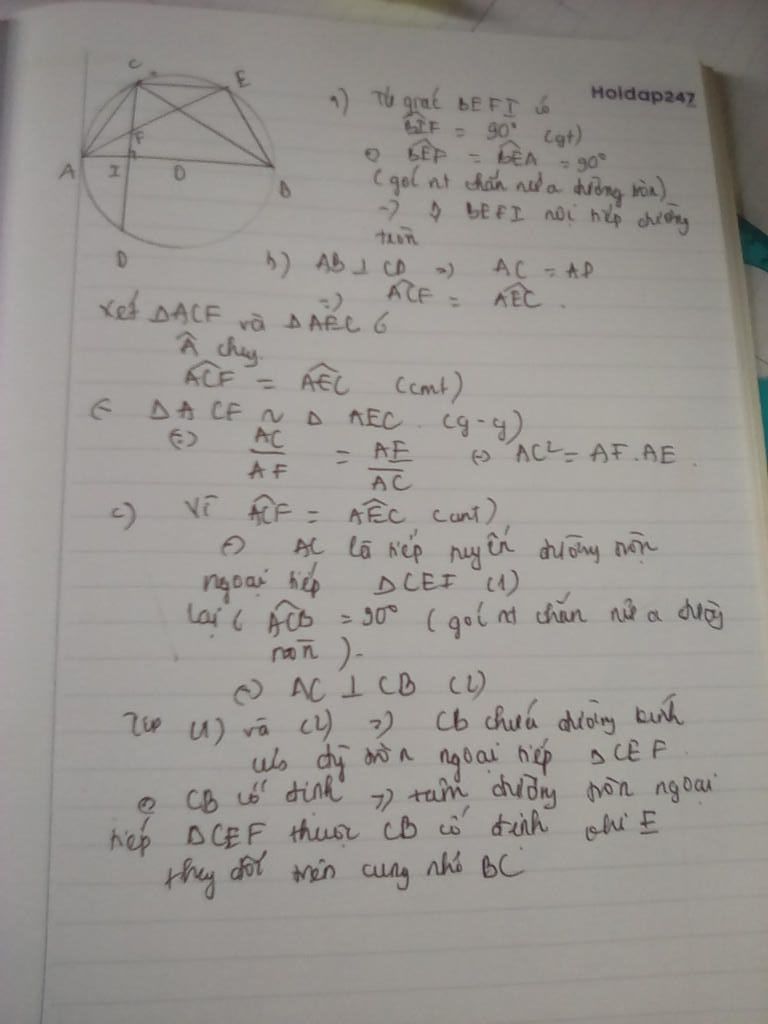 C
E
F
A
I
O
B
D
Holdap247
a) Tứ giác BEFI có
BIF = 90° (gt)
BEF = BEA = 90°
(góc nt chắn nửa đường tròn)
=> ◊ BEFI nội tiếp đường
tròn
b) AB ⊥ CD => AC = AD
=> ACF = AEC .
Xét ΔACF và ΔAEC có
A chung
ACF = AEC (cmt)
ΔACF ~ Δ AEC. (g-g)
AC/AF = AE/AC AC² = AF.AE .
c) Vì ACF = AEC (cmt)
AC là tiếp tuyến đường tròn
ngoại tiếp ΔCEF (1)
lại có ACB = 90° (góc nt chắn nửa đường
tròn).
AC ⊥ CB (2)
Từ (1) và (2) => CB chứa đường kính
của đg tròn ngoại tiếp ΔCEF
CB cố định => tâm đường tròn ngoại
tiếp ΔCEF thuộc CB cố định khi E
thay đổi trên cung nhỏ BC